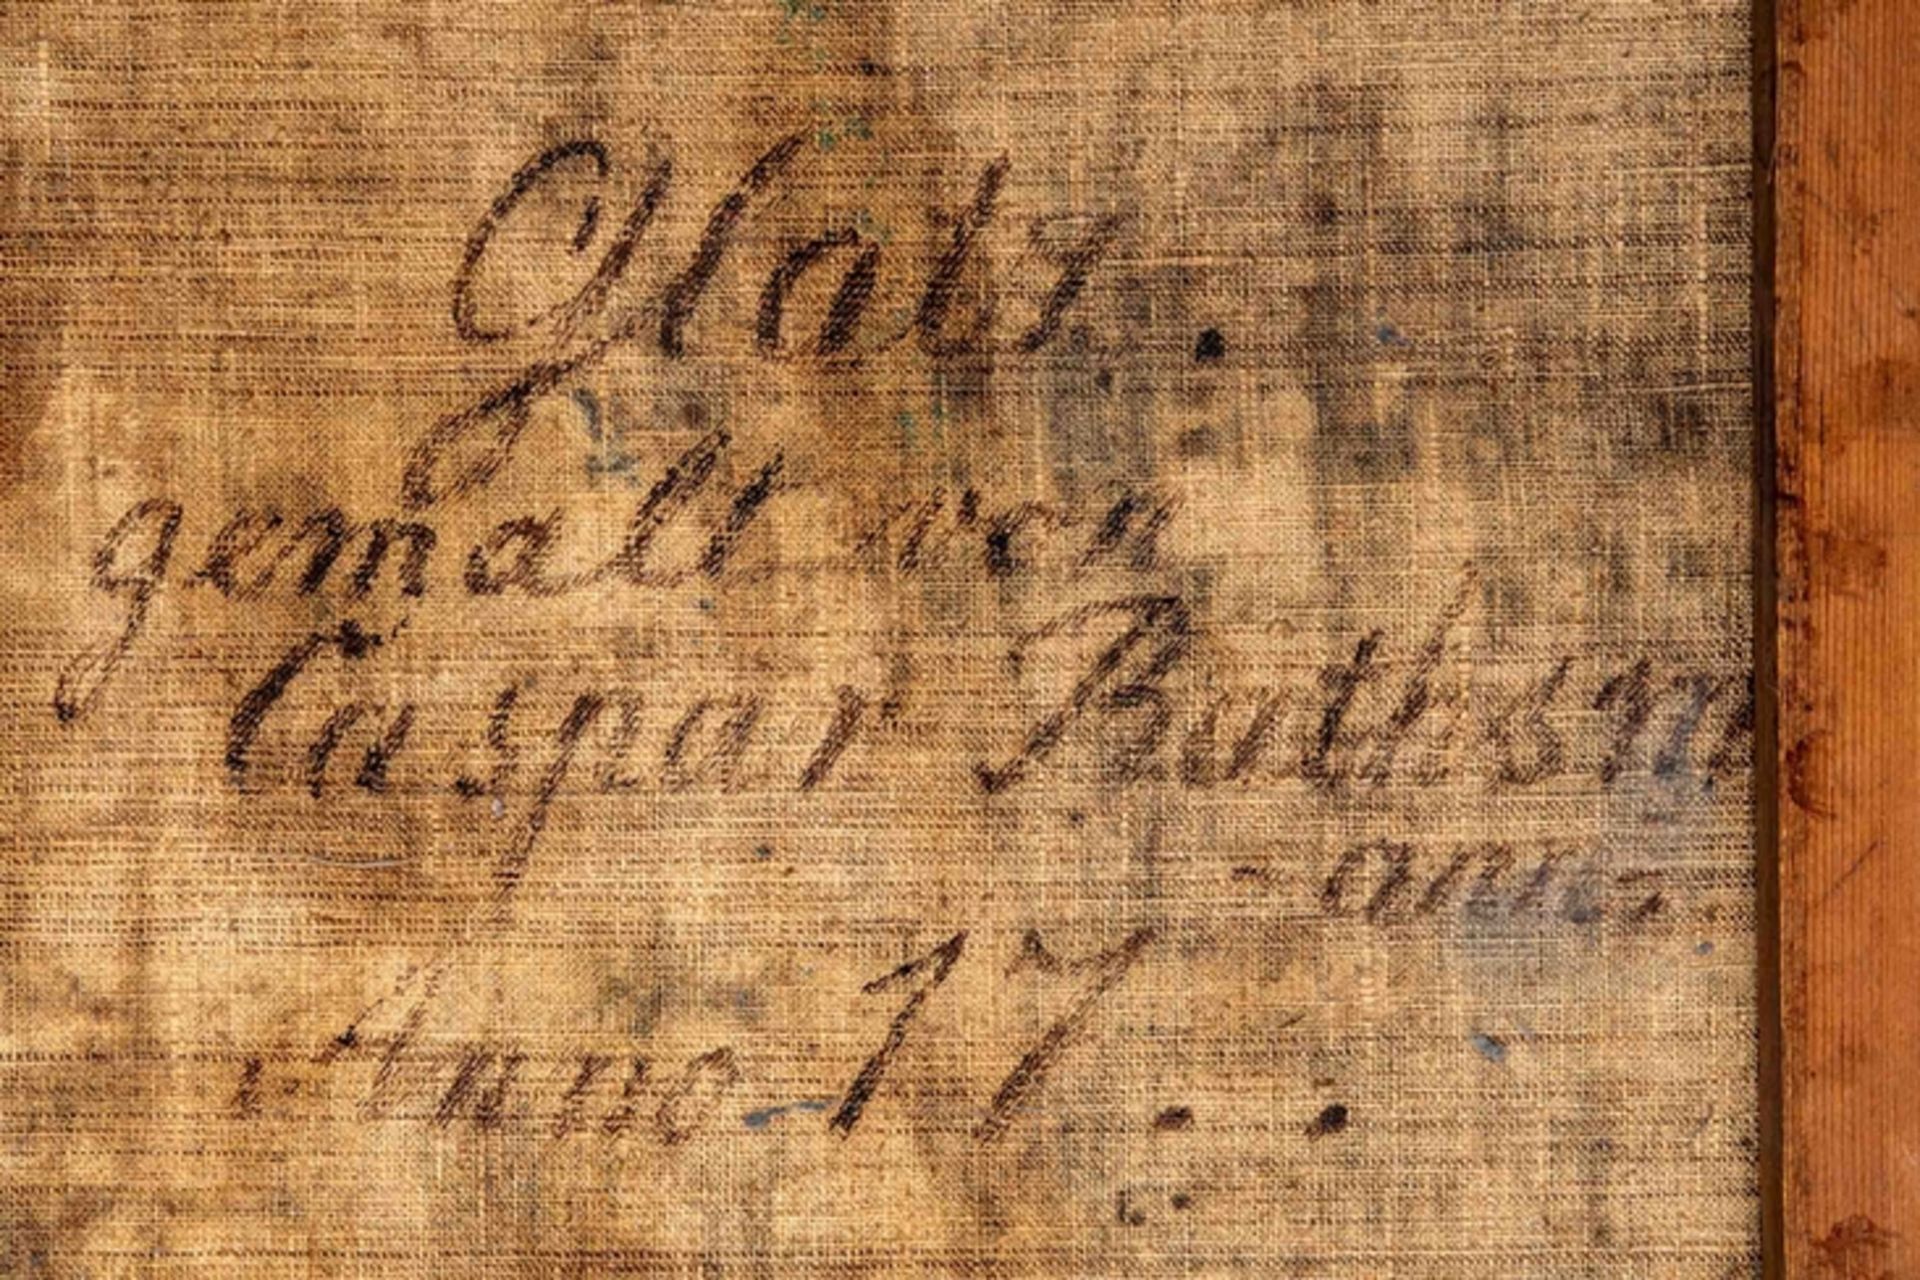 Glatz.
gemalt von
Caspar Ruthsm
- ann.
Anno 17 . .